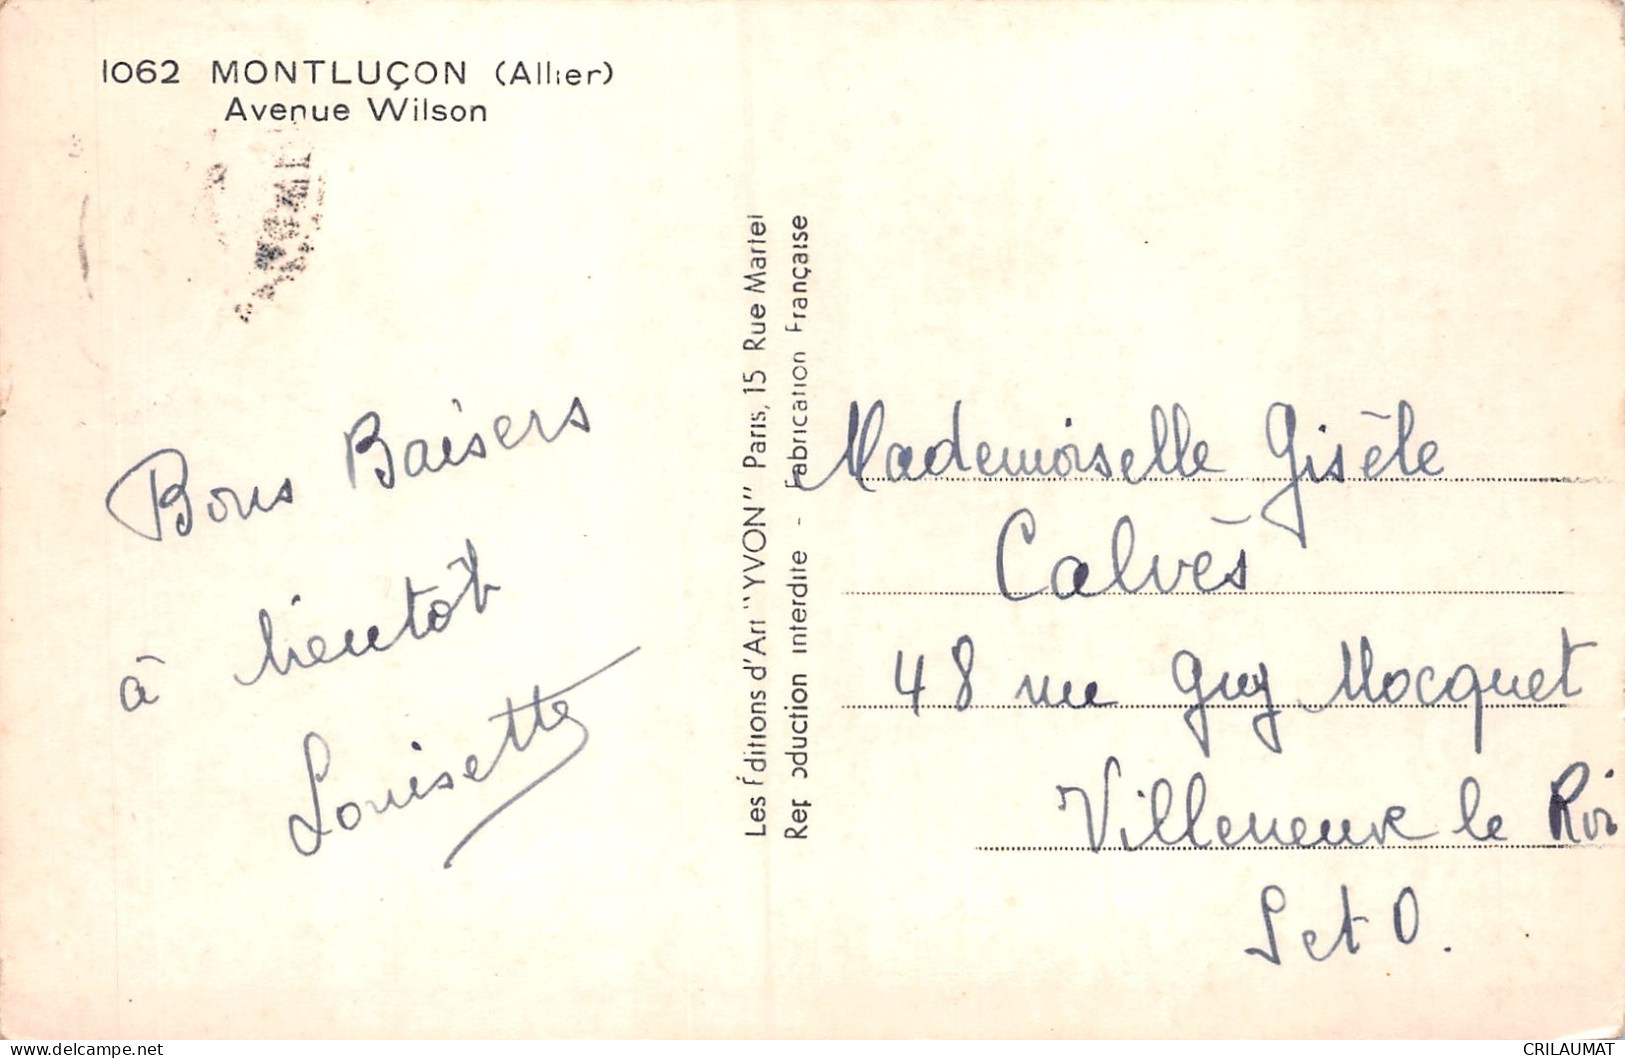 1062 MONTLUÇON (Allier)
Avenue Wilson
Bons Baisers
à bientôt
Louisette
Les Éditions d'Art "YVON" Paris, 15 Rue Martel
Reproduction interdite - Fabrication Française
Mademoiselle Gisèle
Calvès
48 rue Guy Mocquet
Villeneuve le Roi
S et O.
CRILAUMAT